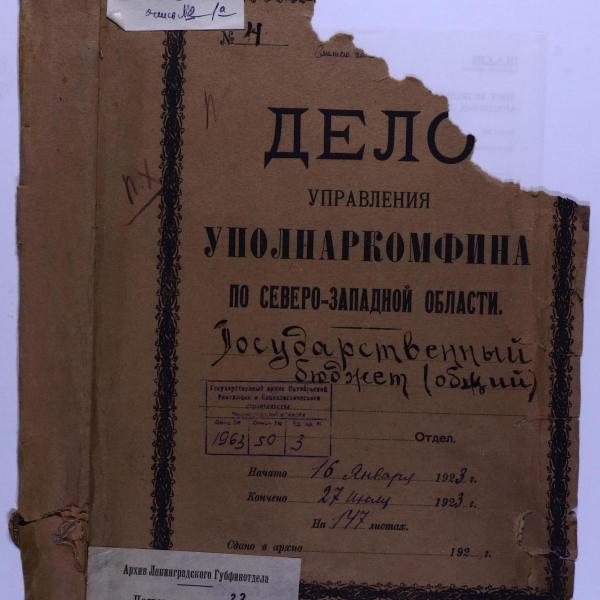 опись № 1а
№ 4
п.
ДЕЛО
п.х.
УПРАВЛЕНИЯ
УПОЛНАРКОМФИНА
ПО СЕВЕРО-ЗАПАДНОЙ ОБЛАСТИ.
Государственный
бюджет (общий)
Государственный архив Октябрьской
Революции и Социалистического
строительства
Фонд № Опись № Ед. хр. №
1963 50 3
Отдел.
Начато 16 Января 1923 г.
Кончено 27 Июля 1923 г.
На 147 листах.
Сдано в архив 192 г.
Архив Ленинградского Губфинотдела